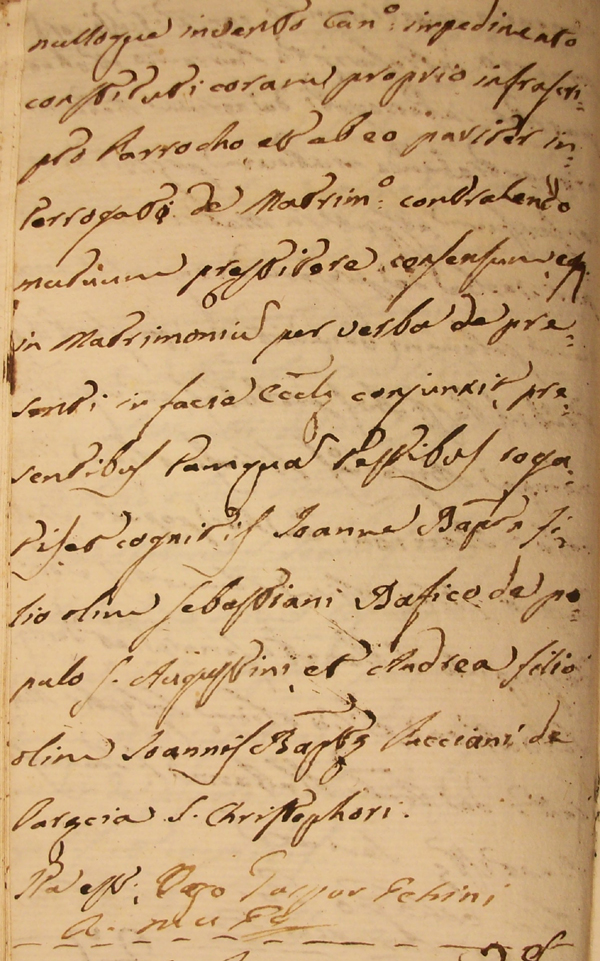 nulloque invento Can.º impedimento
constituti coram proprio infrascri=
pto Parrocho, et ab eo pariter in=
terrogati de Matrim.º contrahendo
mutuum prestitere consensum, eosq
in Matrimoniũ per verba de pre=
senti in facie Eccłę conjunxit, pre=
sentibus tamquã testibus roga=
tis, et cognitis Joanne Bapta fi=
lio olim Sebastiani Bafico de po=
pulo S. Augustini, et Andrea filio
olim Joannis Baptę Pucciani de
Parecia S. Christophori.
Ita est. Ego Gaspar Echini